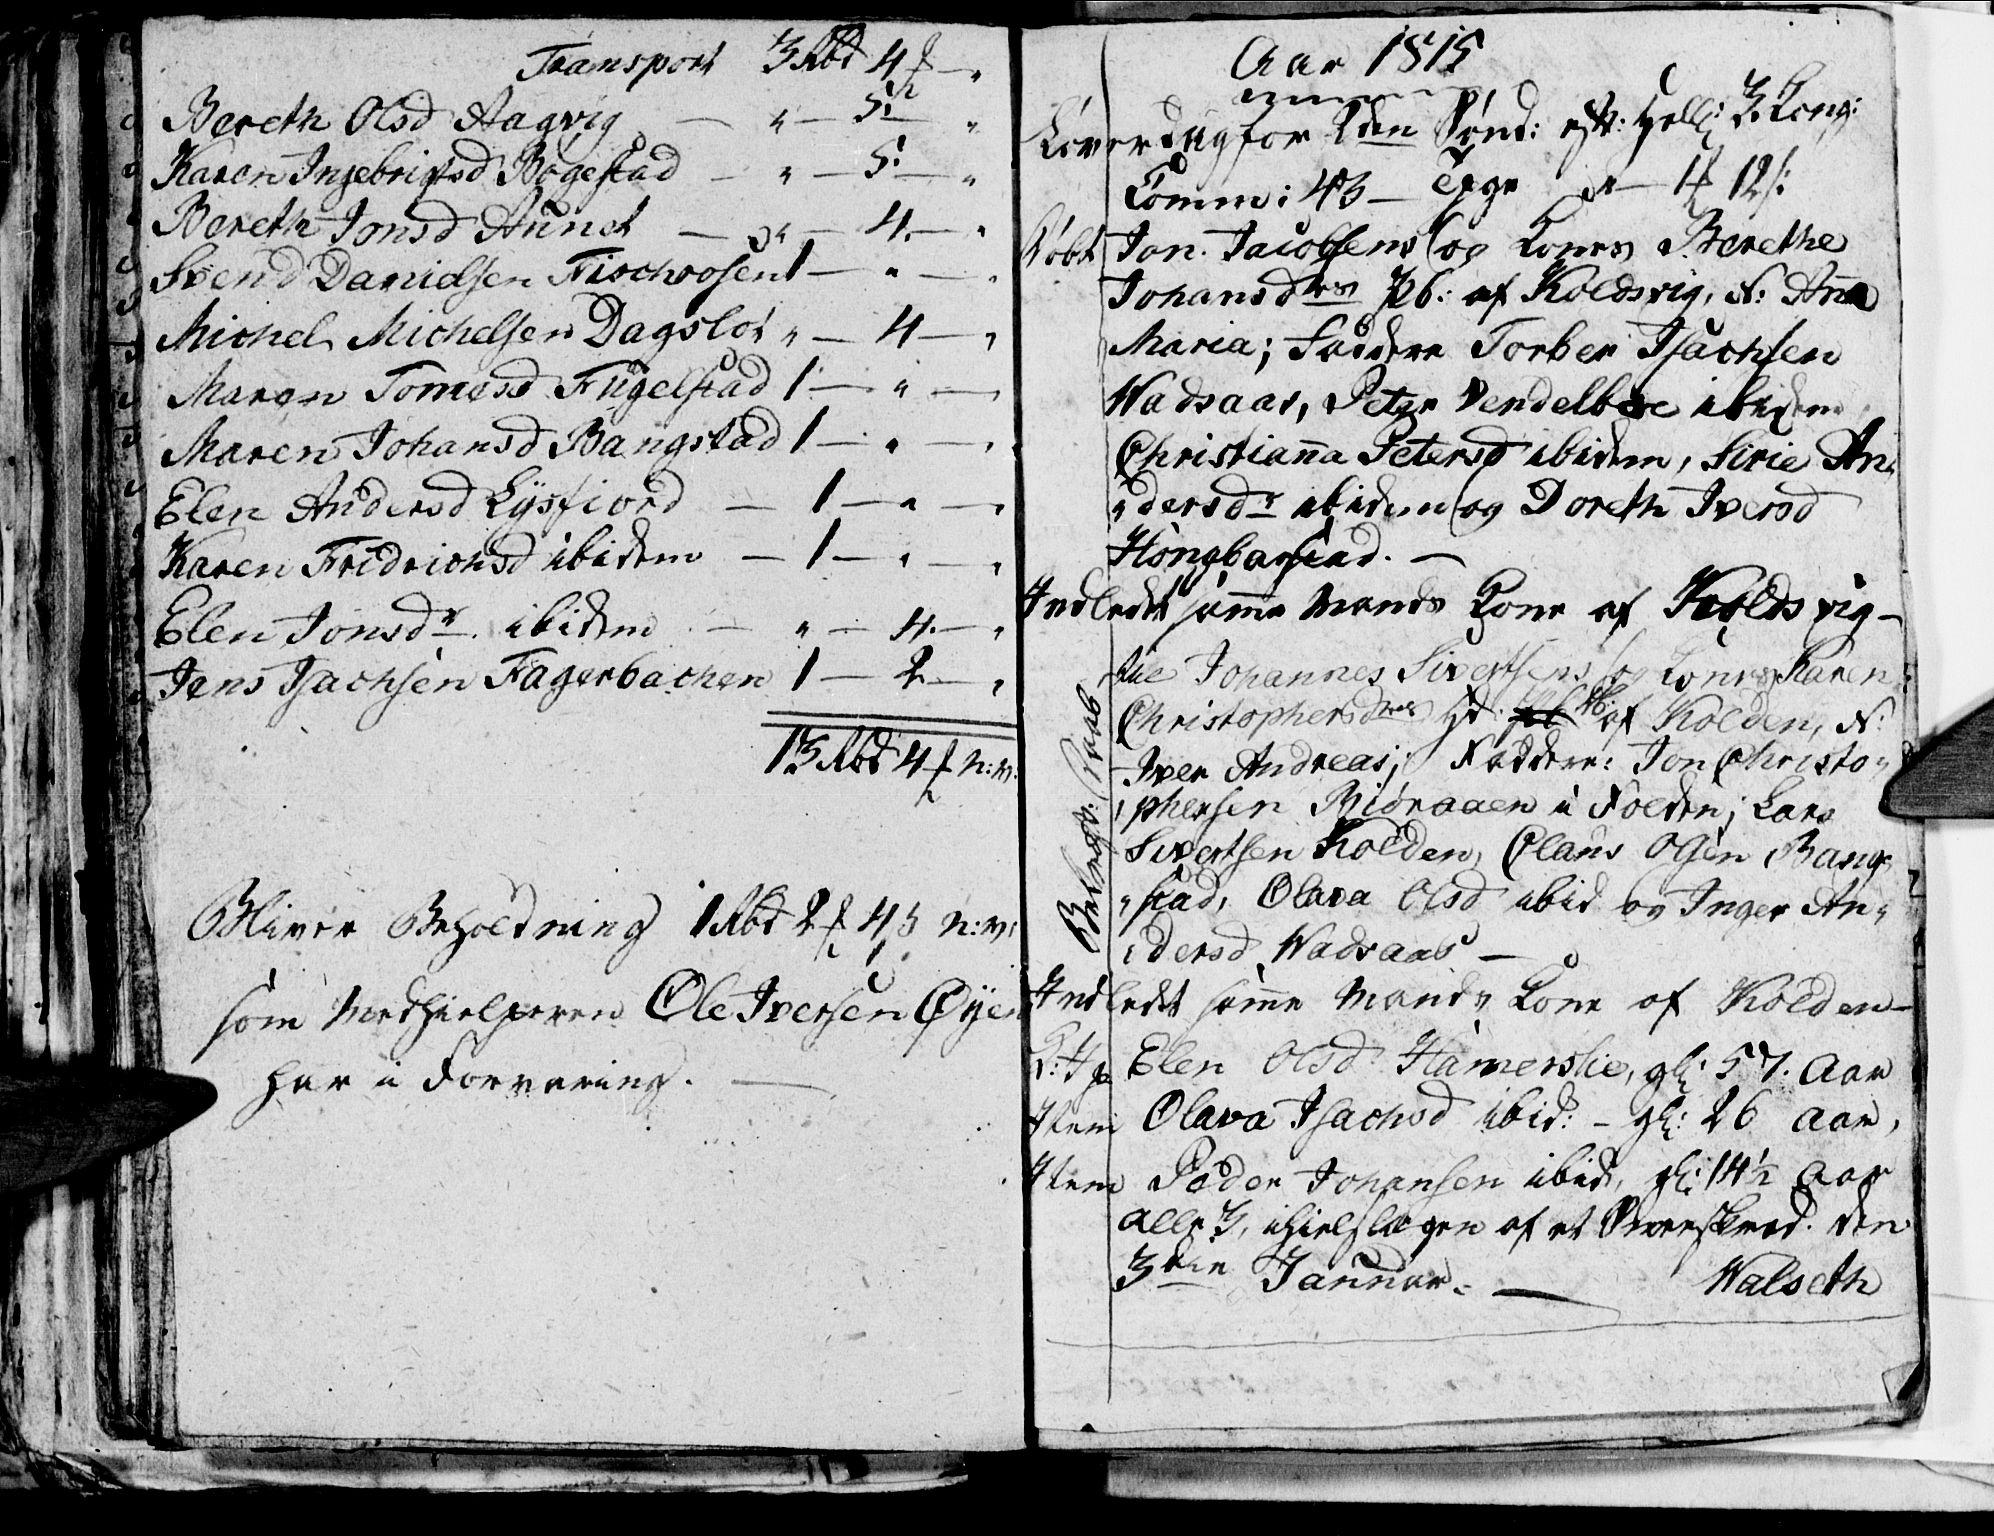 Transport 3 Rbd 4 ƒ — "
Bereth Olsd Aagvig — " — 5. — "
Karen Ingebrigtsd Bogestad — " — 5. — "
Bereth Jonsd Aunet — " — 4. — "
Svend Danielsen Fischvosen 1 — " — "
Michel Michelsen Dagslot " — 4 — "
Maren Tomesd Fugelstad 1 — " — "
Maren Johansd Bangstad 1 — " — "
Elen Andersd Lysfiord — 1 — " — "
Karen Fridrichsd ibidem — 1 — " — "
Elen Jonsdr. ibidem — " — 4. — "
Jens Isachsen Fagerbachen 1 — 2 — "
13 Rbd 4 ƒ n: v:
Bliver Beholdning 1 Rbd 2 ƒ 4 s n: v:
som Medhielperen Ole Iversen Øyen
har i Forvaring. —
Aar 1815
Løverdag for 2den Sønd: eft: Hell: 3 Kong:
Comm: 43 — 1 ƒ 12 s:
Døbt Jon Jacobsens og Kones Berethe
Johansdtrs Æb: af Koldsvig, N: Anna
Maria; Faddere Torber Isachsen
Wadsaas, Peter Vendelboe ibidem
Christianna Petersd ibidem, Sirie An„
„dersdr ibidem og Doreth Iversd
Hongbarstad. —
Indledet samme Mands Kone af Koldsvig —
Johannes Sivertsens og Kones Karen
Christophersdtrs af Kolden, N:
Iver Andreas; Faddere: Jon Christo„
„phersen Biøraaen i Folden; Lars
Sivertsen Kolden, Olaus Olsen Bang„
„stad, Olava Olsd ibid og Inger An„
„dersd Wadsaas —
Indledet samme Mands Kone af Kolden —
Elen Olsd Hamerslie, gl: 57. Aar
Item Olava Isachsd ibid: — gl: 26 Aar,
Item Peder Johansen ibid, gl: 14½ Aar
alle 3, ihielslagen af et Sneeskred den
3die Januar. — Walseth